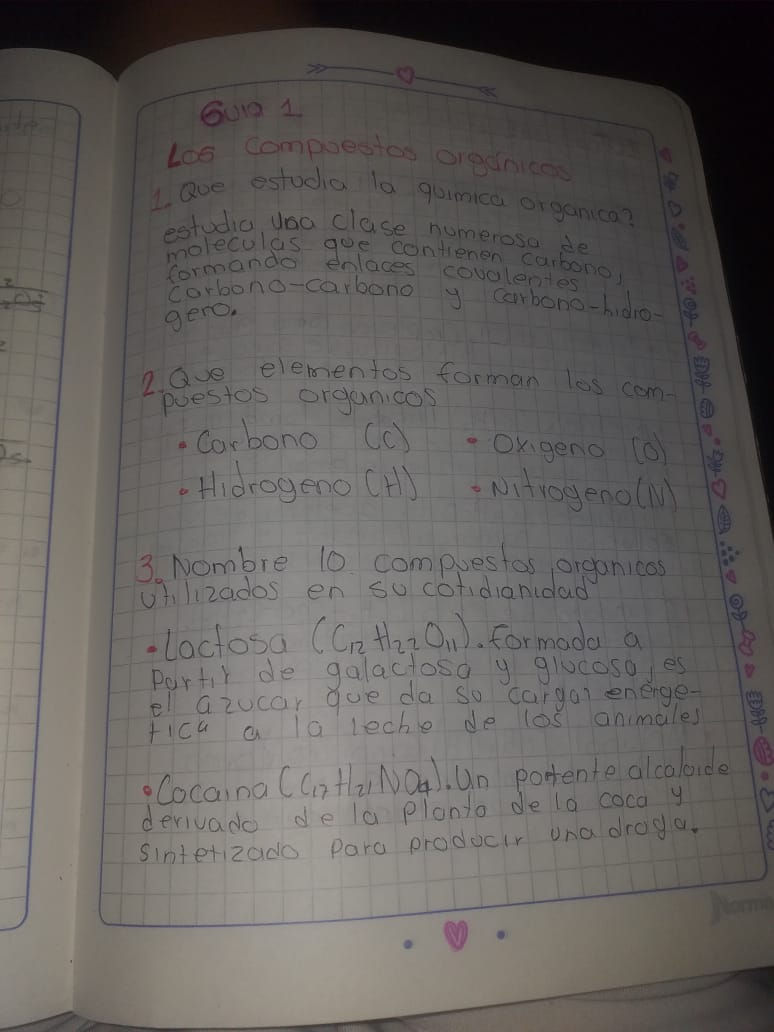 Guia 1
Los compuestos orgánicos
1. Que estudia la quimica organica?
estudia una clase numerosa de
moleculas que contienen carbono,
formando enlaces covalentes
carbono-carbono y carbono-hidro-
geno.
2. Que elementos forman los com-
puestos organicos
• Carbono (C) • Oxigeno (O)
• Hidrogeno (H) • Nitrogeno (N)
3. Nombre 10 compuestos organicos
utilizados en su cotidianidad
• Lactosa (C12 H22 O11). formada a
partir de galactosa y glucosa, es
el azucar que da su cargar energe-
tica a la leche de los animales
• Cocaina (C17 H21 NO4). Un potente alcaloide
derivado de la planta de la coca y
sintetizado para producir una droga.
Norma